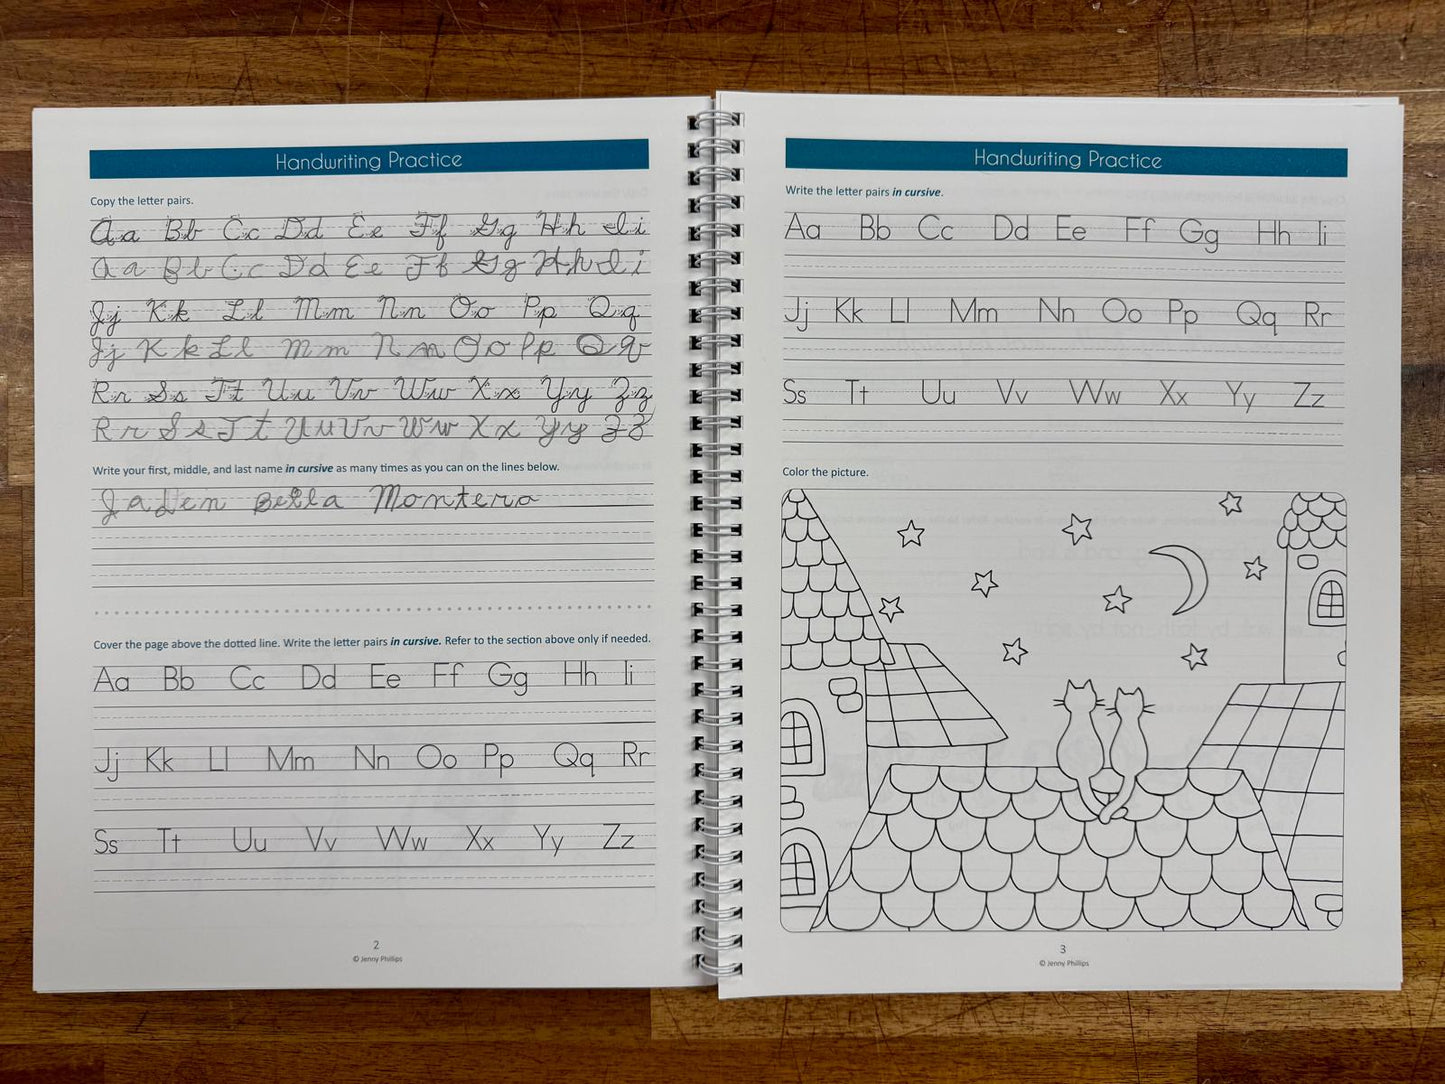 Handwriting Practice
Copy the letter pairs.
Aa Bb Cc Dd Ee Ff Gg Hh Ii
Aa Bb Cc Dd Ee Ff Gg Hh Ii
Jj Kk Ll Mm Nn Oo Pp Qq
Jj Kk Ll Mm Nn Oo Pp Qq
Rr Ss Tt Uu Vv Ww Xx Yy Zz
Rr Ss Tt Uu Vv Ww Xx Yy Zz
Write your first, middle, and last name in cursive as many times as you can on the lines below.
Jaden Bella Montero
Cover the page above the dotted line. Write the letter pairs in cursive. Refer to the section above only if needed.
Aa Bb Cc Dd Ee Ff Gg Hh Ii
Jj Kk Ll Mm Nn Oo Pp Qq Rr
Ss Tt Uu Vv Ww Xx Yy Zz
2
© Jenny Phillips
Handwriting Practice
Write the letter pairs in cursive.
Aa Bb Cc Dd Ee Ff Gg Hh Ii
Jj Kk Ll Mm Nn Oo Pp Qq Rr
Ss Tt Uu Vv Ww Xx Yy Zz
Color the picture.
3
© Jenny Phillips